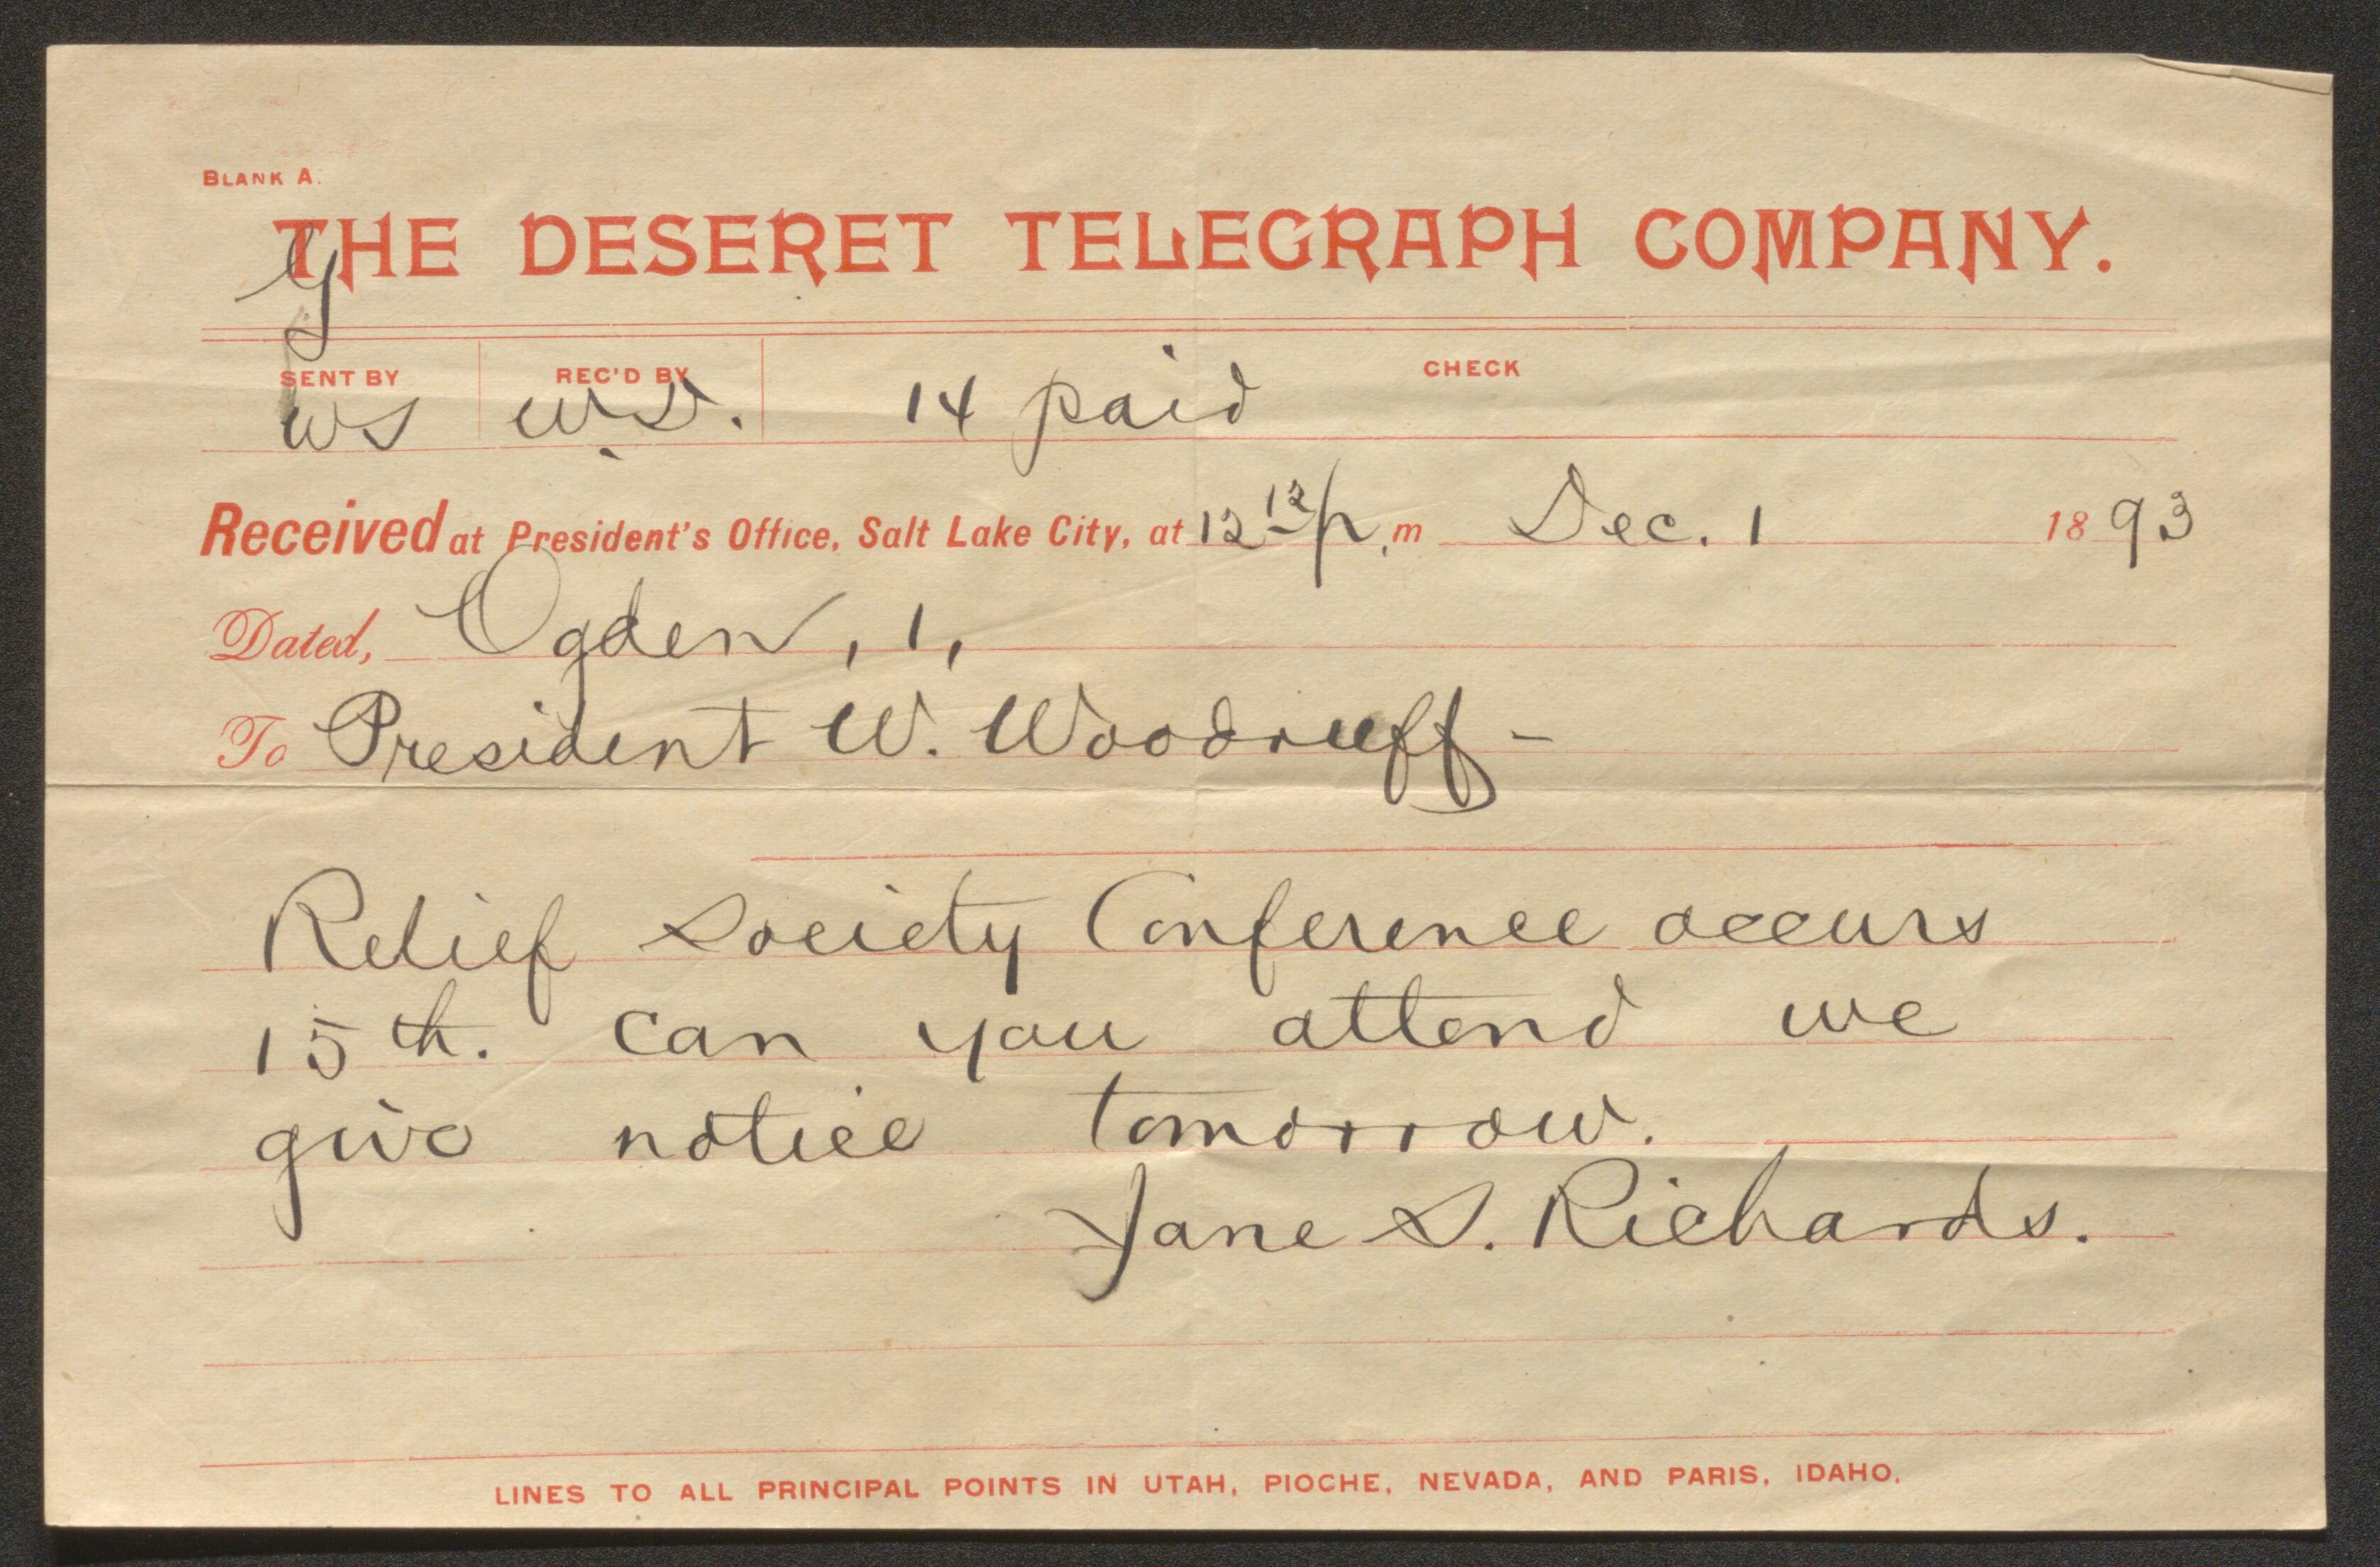 BLANK A.
THE DESERET TELEGRAPH COMPANY.
y
SENT BY REC'D BY CHECK
WS W.D. 14 paid
Received at President's Office, Salt Lake City, at 12 12/p.m Dec. 1 1893
Dated, Ogden, 1,
To President W. Woodruff -
Relief Society Conference occurs
15th. can you attend we
give notice tomorrow.
Jane S. Richards.
LINES TO ALL PRINCIPAL POINTS IN UTAH, PIOCHE, NEVADA, AND PARIS, IDAHO.